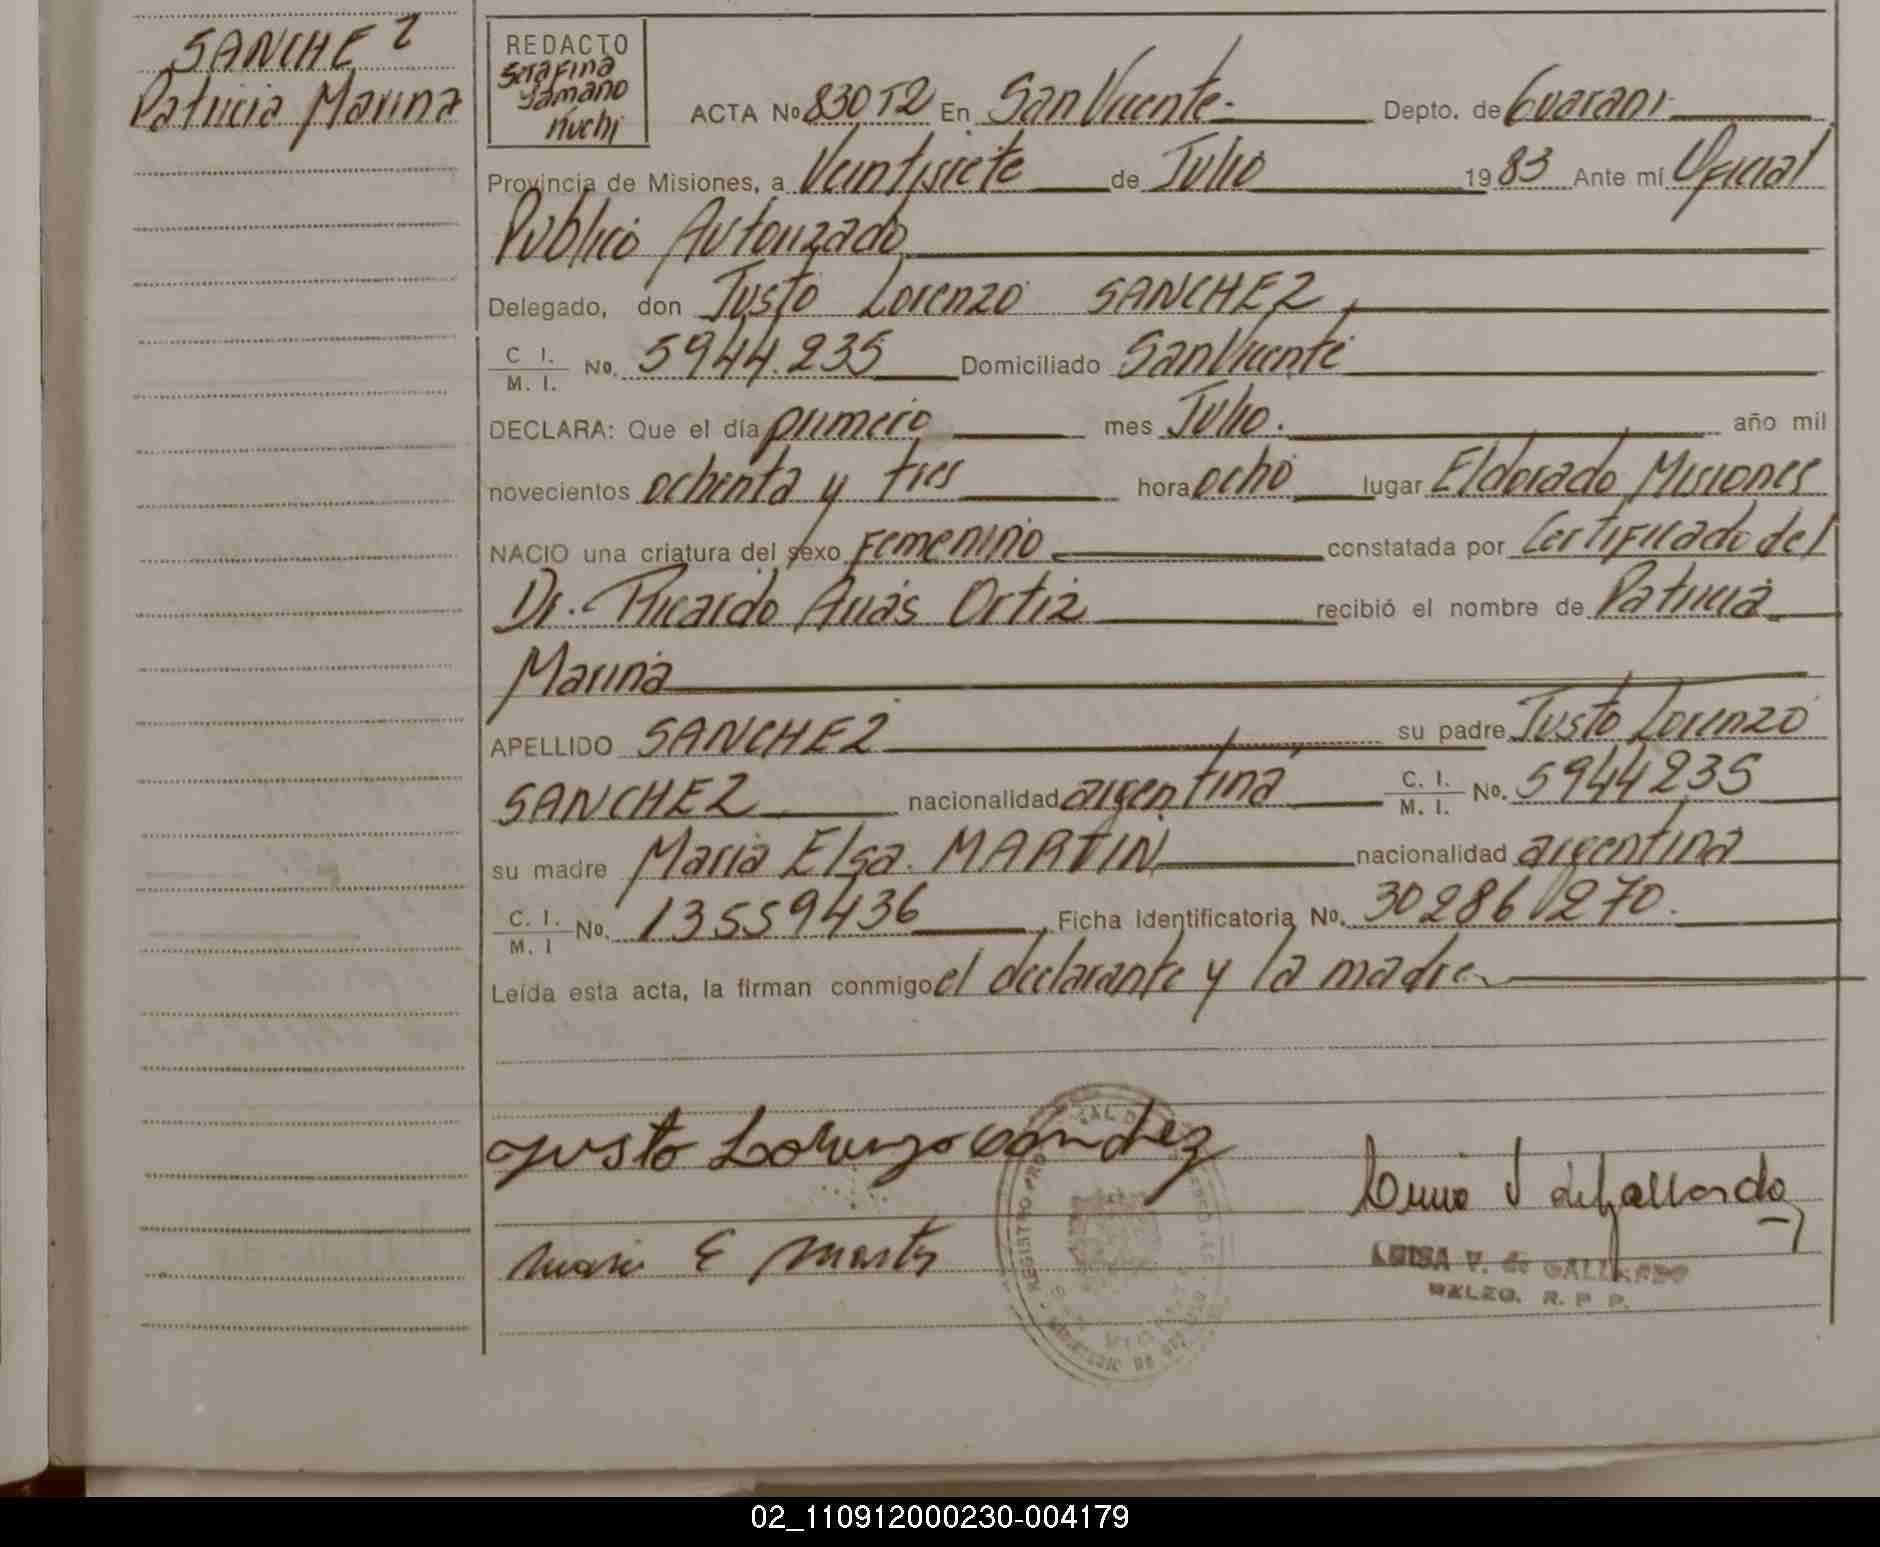 SANCHEZ
Patricia Marina
REDACTO
Serafina
Yamano
ñuchi
ACTA No 830 T2 En San Vicente.- Depto. de Guarani
Provincia de Misiones, a Veintisiete de Julio 1983 Ante mí Oficial
Publico Autorizado
Delegado, don Justo Lorenzo SANCHEZ,
C. I. / M. I. No. 5944.235 Domiciliado San Vicente
DECLARA: Que el día primero mes Julio. año mil
novecientos ochenta y tres hora ocho lugar Eldorado Misiones
NACIO una criatura del sexo Femenino constatada por Certificado del
Dr. Ricardo Arias Ortiz recibió el nombre de Patricia
Marina
APELLIDO SANCHEZ su padre Justo Lorenzo
SANCHEZ nacionalidad argentina C. I. / M. I. No. 5944235
su madre Maria Elsa. MARTIN nacionalidad argentina
C. I. / M. I No. 13559436 Ficha Identificatoria No. 30286270.
Leída esta acta, la firman conmigo el declarante y la madre
Justo Lorenzo Sanchez
de Gallardo
Maria E Martin
LUISA V. de GALLARDO
DELEG. R. P. P.
REGISTRO PRO
02_110912000230-004179